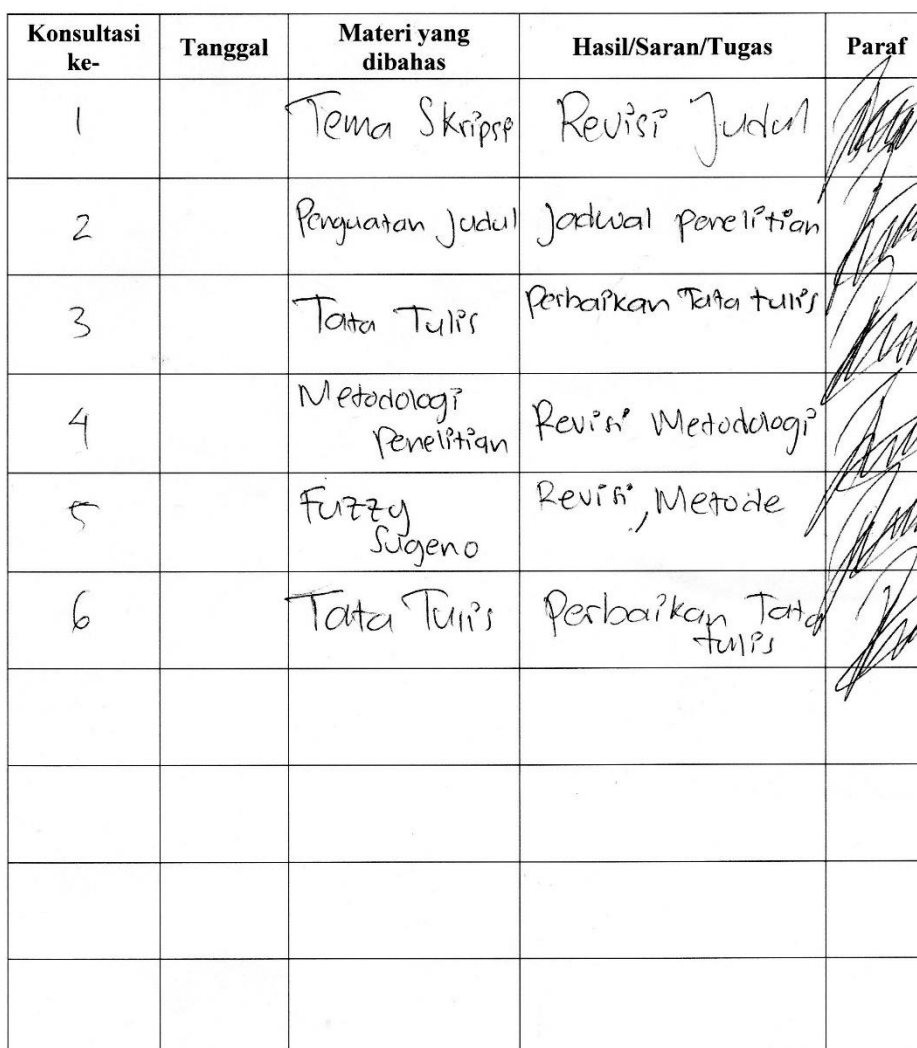 Konsultasi ke- Tanggal Materi yang dibahas Hasil/Saran/Tugas Paraf
1 Tema Skripsi Revisi Judul
2 Penguatan Judul Jadwal penelitian
3 Tata Tulis Perbaikan Tata tulis
4 Metodologi Penelitian Revisi Metodologi
5 Fuzzy Sugeno Revisi, Metode
6 Tata Tulis Perbaikan Tata tulis